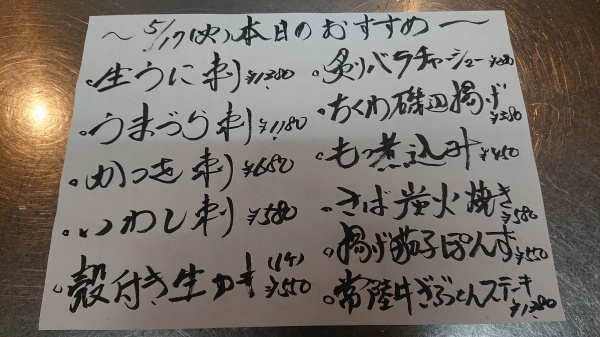 〜5/17(火)本日のおすすめ〜
。生うに刺 ¥1380
。うまづら刺 ¥1,180
。めつき刺 ¥680
。いわし刺 ¥580
。殻付き生カキ(1ケ) ¥550
。炙りバラチャーシュー
。ちくわ磯辺揚げ ¥380
。もつ煮込み ¥450
。さば炭火焼き ¥580
。揚げ茄子ぽんず ¥550
。常陸牛ぎぶとんステーキ ¥1,380